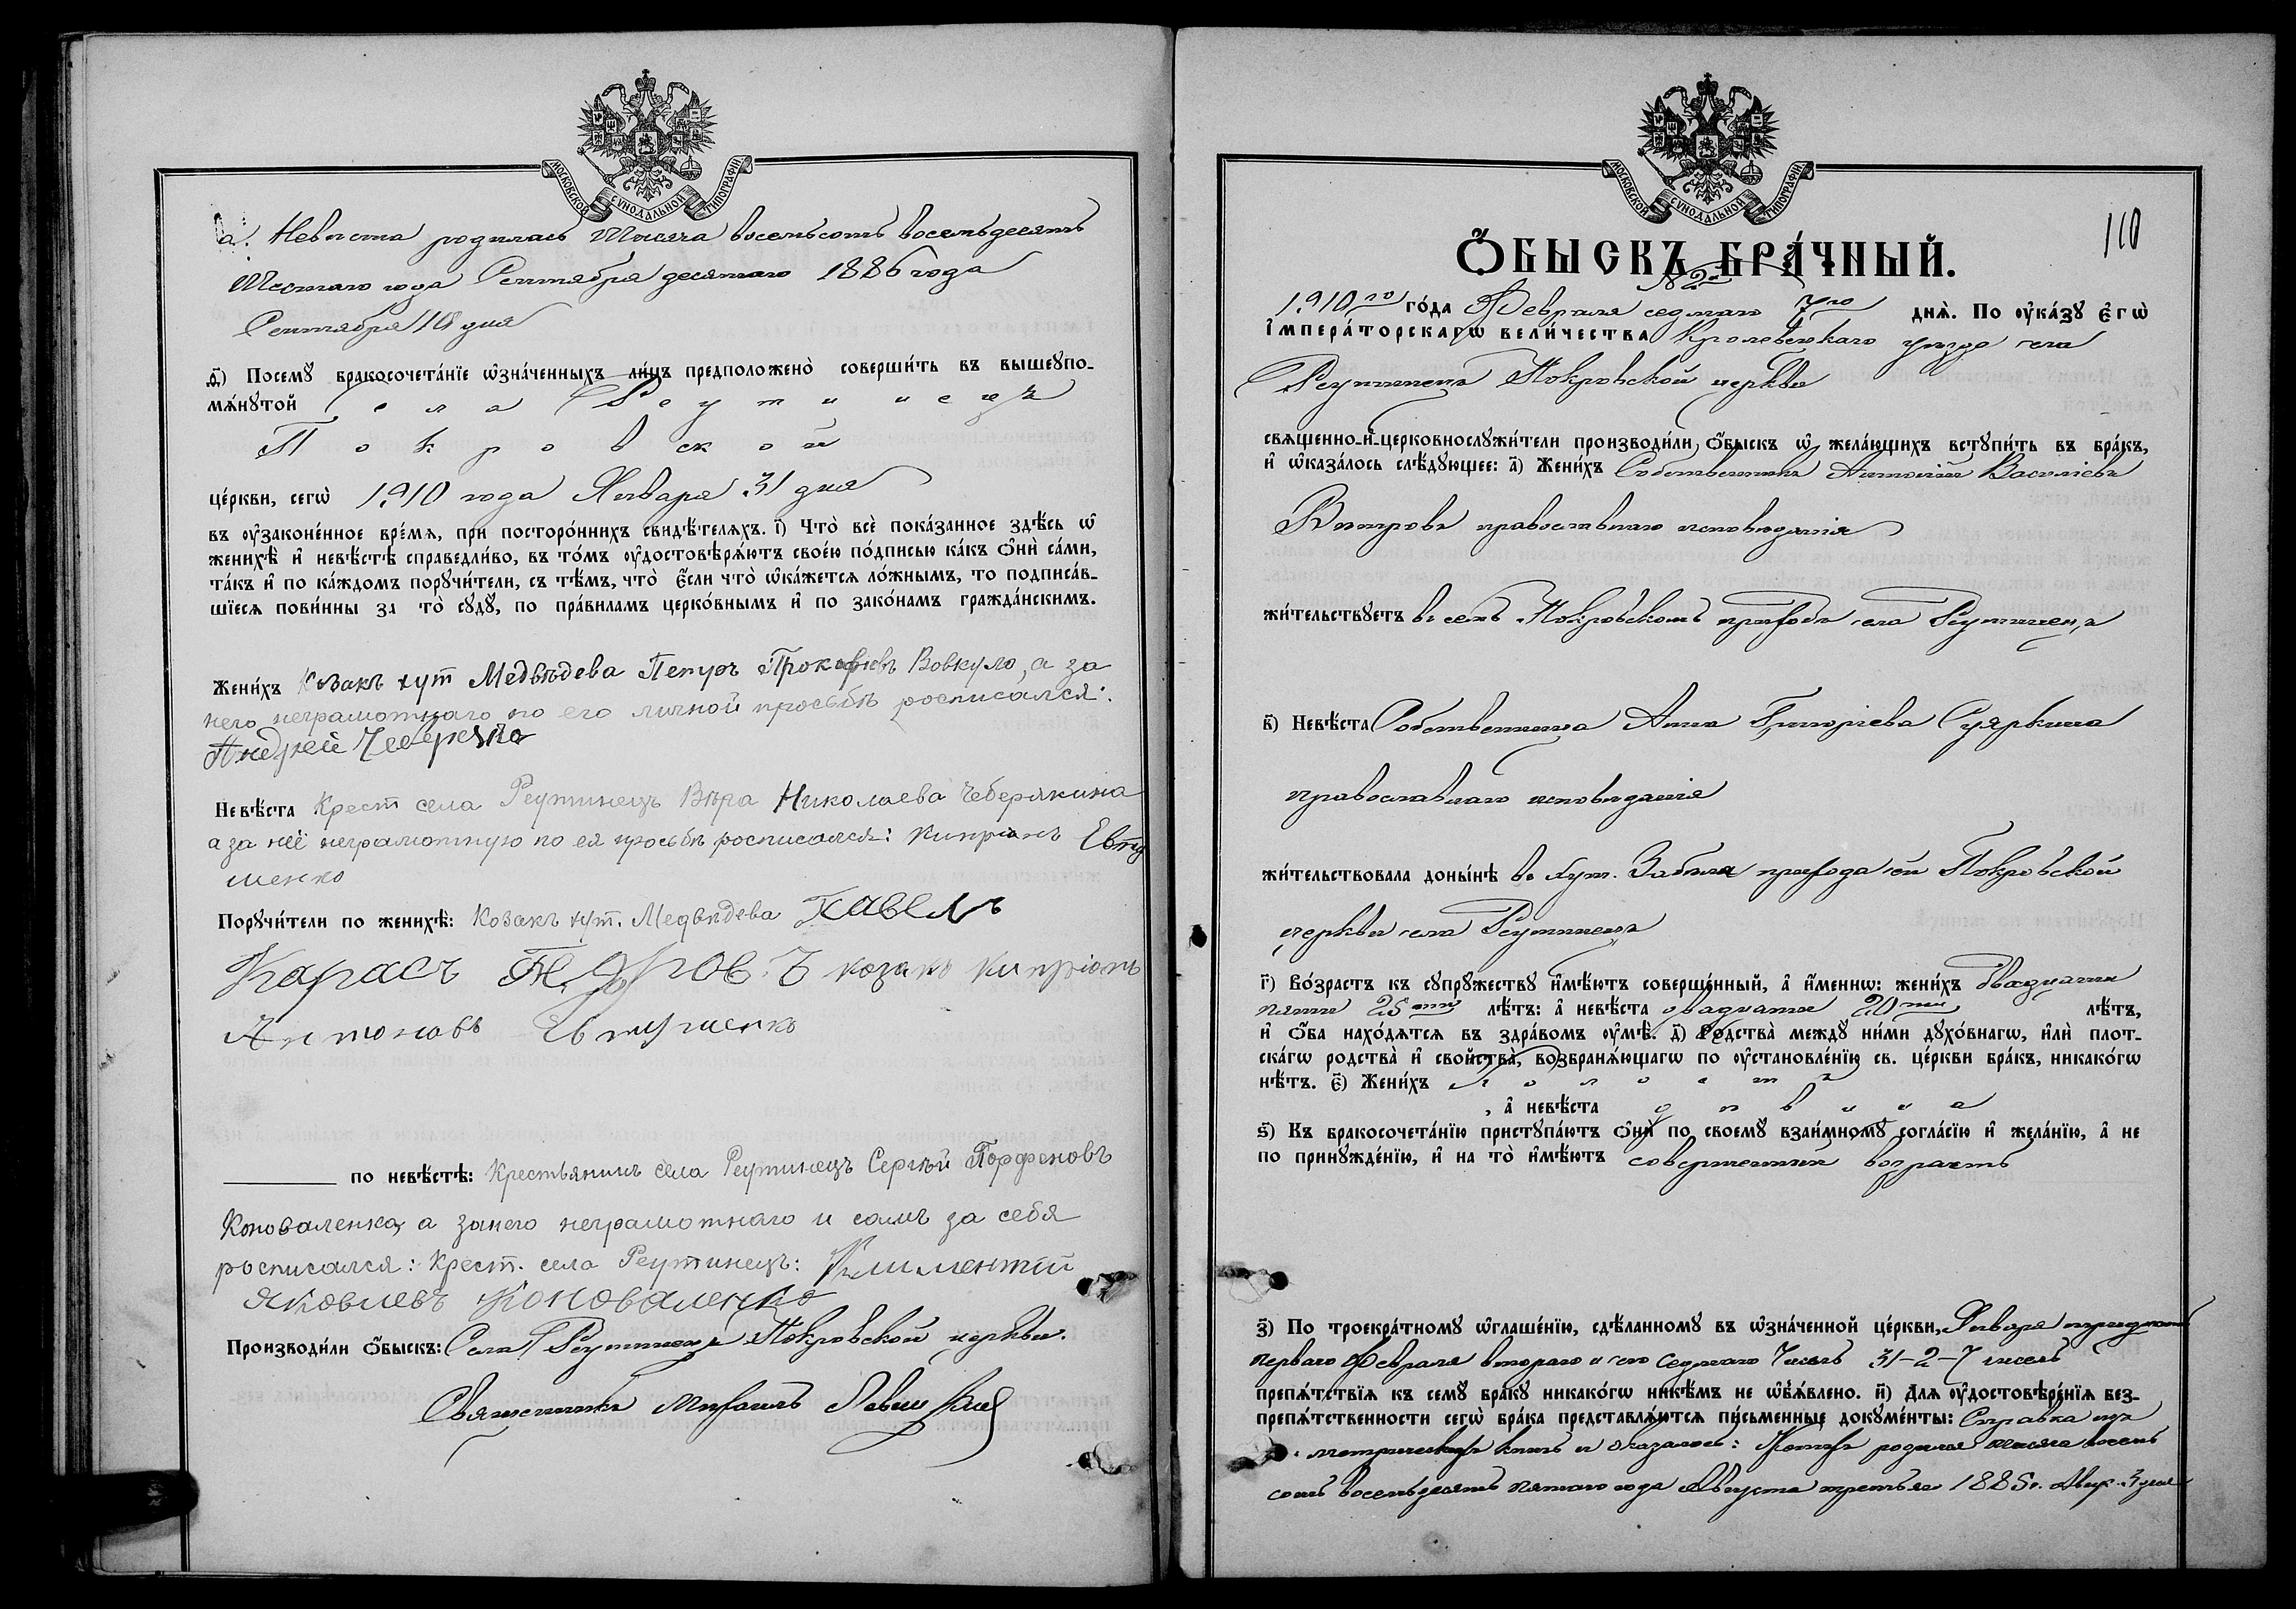 МОСКОВСКОЙ СѴНОДАЛЬНОЙ ТИПОГРАФІИ
а. Невѣста родилась тысяча восемьсотъ восемьдесятъ
шестаго года Сентября десятаго 1886 года
Сентября 10 дня
ѳ҃) Посемꙋ̀ бракосочета́нїе ѡ҆зна́ченныхъ ли́цъ предположено̀ соверши́ть въ вышеꙋпо-
мѧ́нꙋтой села Реутинецъ
Покровской
це́ркви, сегѡ̀ 1910 года Января 31 дня
въ ᲂу҆законе́нное вре́мѧ, при посторо́ннихъ свидѣ́телѧхъ. і҃) Что̀ всѐ пока́занное здѣ́сь ѡ҆
женихѣ̀ и҆ невѣ́стѣ справедли́во, въ то́мъ ᲂу҆достовѣрѧ́ютъ свое́ю по́дписью ка́къ ѻ҆нѝ са́ми,
та́къ и҆ по ка́ждомъ порꙋчи́тели, съ тѣ́мъ, что̀ є҆́сли что̀ ѡ҆ка́жетсѧ ло́жнымъ, то подписа́в-
шїесѧ пови́нны за то̀ сꙋдꙋ̀, по пра́виламъ церко́внымъ и҆ по зако́намъ гражда́нскимъ.
Жени́хъ Козакъ хут Медвѣдева Петръ Прокофіевъ Вовкуло, а за
него неграмотнаго по его личной просьбѣ росписался:
Андрей
Невѣ́ста Крест села Реутинецъ Вѣра Николаева Чеберякина
а за неё неграмотную по ея просьбѣ росписался: Кипріянъ Евту
шенко
Порꙋчи́тели по женихѣ̀: Козакъ хут. Медвѣдева Павелъ
Карасъ козакъ Кипріянъ
Антоновъ Евтушенко
по невѣ́стѣ: Крестьянинъ села Реутинецъ Сергѣй Парфеновъ
Коноваленко, а занего неграмотнаго и самъ за себя
росписался: Крест. села Реутинецъ: Климентій
Яковлевъ Коноваленко
Производи́ли ѻ҆́быскъ: Села Реутинецъ Покровской церкви.
Священникъ Михаилъ
МОСКОВСКОЙ СѴНОДАЛЬНОЙ ТИПОГРАФІИ
110
Ѻ҆́БЫСКЪ БРА́ЧНЫЙ.
№ 2
1910го го́да Февраля седмаго 7го днѧ̀. По ᲂу҆ка́зꙋ є҆гѡ̀
і҆мпера́торскагѡ вели́чества Кролевецкаго уѣзда села
Реутинецъ Покровской церкви
свѧщенно-и҆-церковнослꙋжи́тели производи́ли ѻ҆́быскъ ѡ҆ жела́ющихъ встꙋпи́ть въ бра́къ,
и҆ ѡ҆каза́лось слѣ́дꙋющее: а҃) Жени́хъ Собственникъ Антоній Василіевъ
Вѣтровъ православнаго исповѣданія
жи́тельствꙋетъ въ семъ Покровскомъ приходѣ села Реутинецъ
в҃) Невѣ́ста Собственница Анна Григоріева Суяркина
православнаго исповѣданія
жи́тельствовала доны́нѣ въ хут. прихода сей Покровской
церкви села Реутинецъ
г҃) Во́зрастъ къ сꙋпрꙋ́жествꙋ и҆мѣ́ютъ соверше́нный, а҆ и҆́меннѡ: жени́хъ двадцати
пяти 25ти лѣ́тъ: а҆ невѣ́ста двадцати 20ти лѣ́тъ,
и҆ ѻ҆́ба нахо́дѧтсѧ въ здра́вомъ ᲂу҆мѣ̀. д҃) Родства̀ междꙋ̀ ни́ми дꙋхо́внагѡ, и҆лѝ плот-
ска́гѡ родства̀ и҆ свойства̀, возбранѧ́ющагѡ по ᲂу҆становле́нїю св. це́ркви бра́къ, никако́гѡ
нѣ́тъ. є҃) Жени́хъ холостъ
, а҆ невѣ́ста дѣвица
ѕ҃) Къ бракосочета́нїю пристꙋпа́ютъ ѻ҆нѝ по своемꙋ̀ взаи́мномꙋ согла́сїю и҆ жела́нїю, а҆ не
по принꙋжде́нїю, и҆ на то̀ и҆мѣ́ютъ совершенный возрастъ
з҃) По троекра́тномꙋ ѡ҆глаше́нїю, сдѣ́ланномꙋ въ ѡ҆зна́ченной це́ркви, Января тридцать
перваго Февраля втораго и его седмаго чиселъ 31-2-7 чиселъ
препѧ́тствїѧ къ семꙋ̀ бра́кꙋ никако́гѡ никѣ́мъ не ѡ҆б̾ѧ́влено. и҃) Длѧ ᲂу҆достовѣре́нїѧ без-
препѧ́тственности сегѡ̀ бра́ка представлѧ́ютсѧ пи́сьменные докꙋме́нты: Справка изъ
метрическихъ книгъ и оказалось: Женихъ родился тысяча восемь
сотъ восемьдесятъ пятаго года Августа третьяго 1885 г. Авг. 3 дня